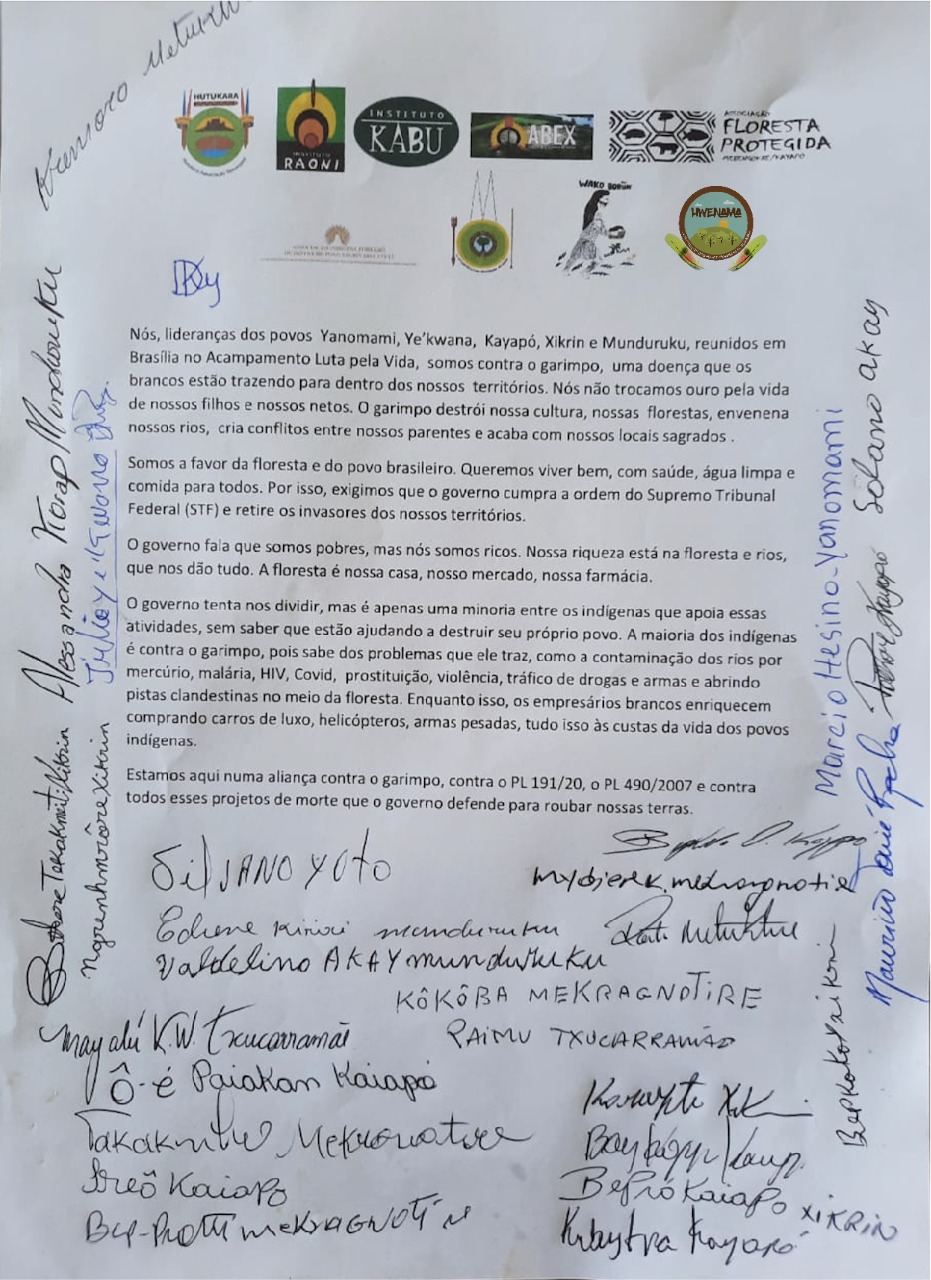 HUTUKARA
INSTITUTO
RAONI
INSTITUTO
KABU
ABEX
ASSOCIAÇÃO
FLORESTA
PROTEGIDA
MEBENGOKRE/KAYAPÓ
WAKO BORŨN
HWENAMA
Nós, lideranças dos povos Yanomami, Ye’kwana, Kayapó, Xikrin e Munduruku, reunidos em
Brasília no Acampamento Luta pela Vida, somos contra o garimpo, uma doença que os
brancos estão trazendo para dentro dos nossos territórios. Nós não trocamos ouro pela vida
de nossos filhos e nossos netos. O garimpo destrói nossa cultura, nossas florestas, envenena
nossos rios, cria conflitos entre nossos parentes e acaba com nossos locais sagrados .
Somos a favor da floresta e do povo brasileiro. Queremos viver bem, com saúde, água limpa e
comida para todos. Por isso, exigimos que o governo cumpra a ordem do Supremo Tribunal
Federal (STF) e retire os invasores dos nossos territórios.
O governo fala que somos pobres, mas nós somos ricos. Nossa riqueza está na floresta e rios,
que nos dão tudo. A floresta é nossa casa, nosso mercado, nossa farmácia.
O governo tenta nos dividir, mas é apenas uma minoria entre os indígenas que apoia essas
atividades, sem saber que estão ajudando a destruir seu próprio povo. A maioria dos indígenas
é contra o garimpo, pois sabe dos problemas que ele traz, como a contaminação dos rios por
mercúrio, malária, HIV, Covid, prostituição, violência, tráfico de drogas e armas e abrindo
pistas clandestinas no meio da floresta. Enquanto isso, os empresários brancos enriquecem
comprando carros de luxo, helicópteros, armas pesadas, tudo isso às custas da vida dos povos
indígenas.
Estamos aqui numa aliança contra o garimpo, contra o PL 191/20, o PL 490/2007 e contra
todos esses projetos de morte que o governo defende para roubar nossas terras.
Alessandra Korap Munduruku
Marcio Hesino-Yanomami
Solano akay
munduruku
Valdelino AKAY munduruku
KÔKÔBA MEKRAGNOTIRE
Mayalú K.W. Txucarramãe
RAIMU TXUCARRAMÃE
Ô-é Paiakan Kaiapó
Ireô Kaiapo
BepróKaiapo XIKRIN
Kayapó